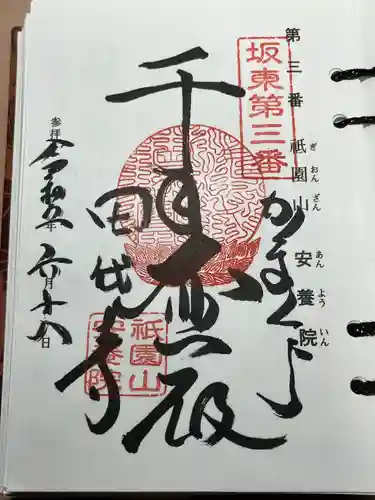 第三番 祇園山 安養院
ぎおんざん あんよういん
坂東第三番
かまくら
千手大悲殿
田代寺
祇園山
安養院
参拝 令和五年 六月十八日